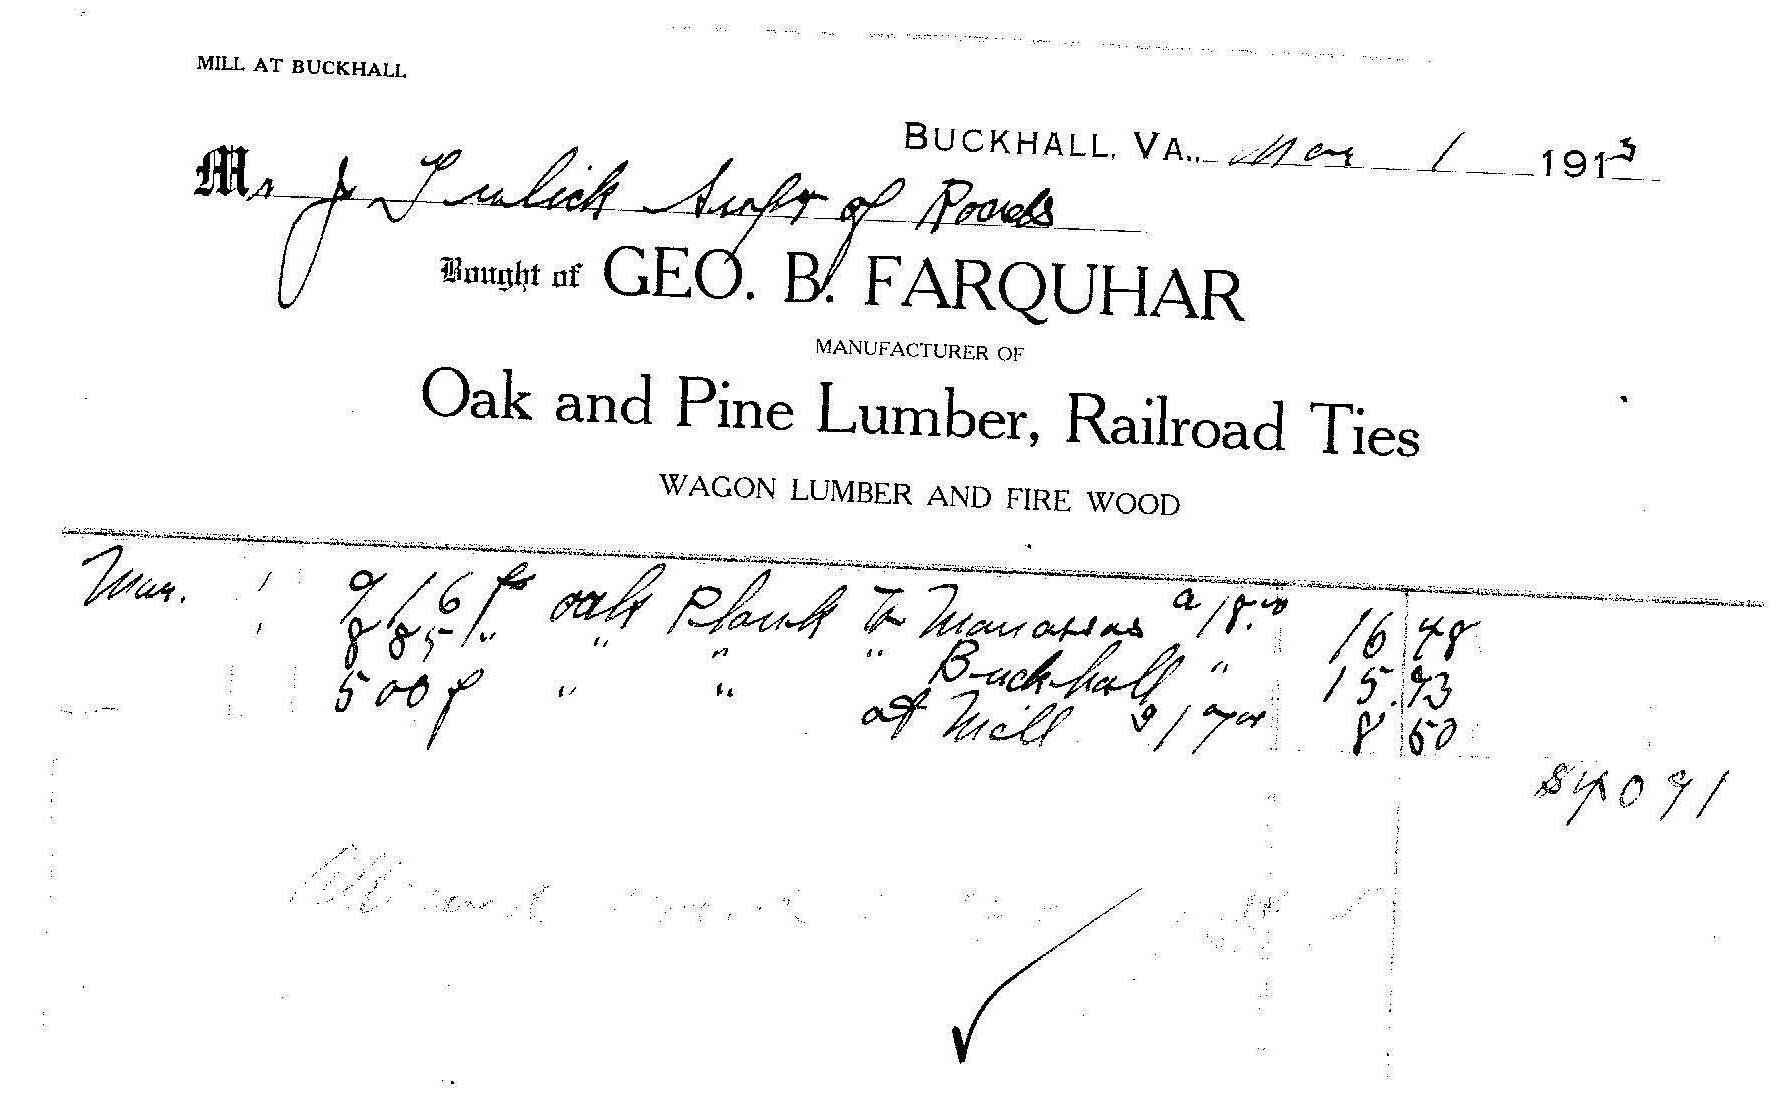 MILL AT BUCKHALL
BUCKHALL, VA., Mar 1 1913
Mr J Gulick Supt of Roads
Bought of GEO. B. FARQUHAR
MANUFACTURER OF
Oak and Pine Lumber, Railroad Ties
WAGON LUMBER AND FIRE WOOD
Mar. 1 916 ft oak Plank to Manassas a 18.00 16 48
885 " " " " Buckhall " 15.93
500 f " " at Mill @ 17 00 8 50
$40 91